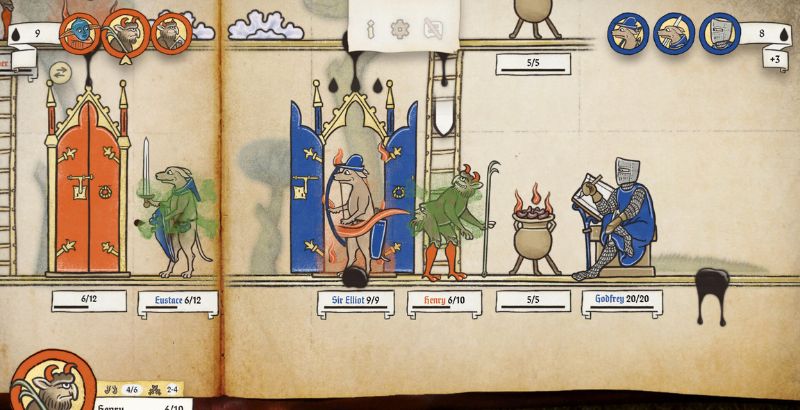 9
8
+3
5/5
6/12
Eustace 6/12
Sir Elliot 9/9
Henry 6/10
5/5
Godfrey 20/20
4/6
2-4
Henry
6/10